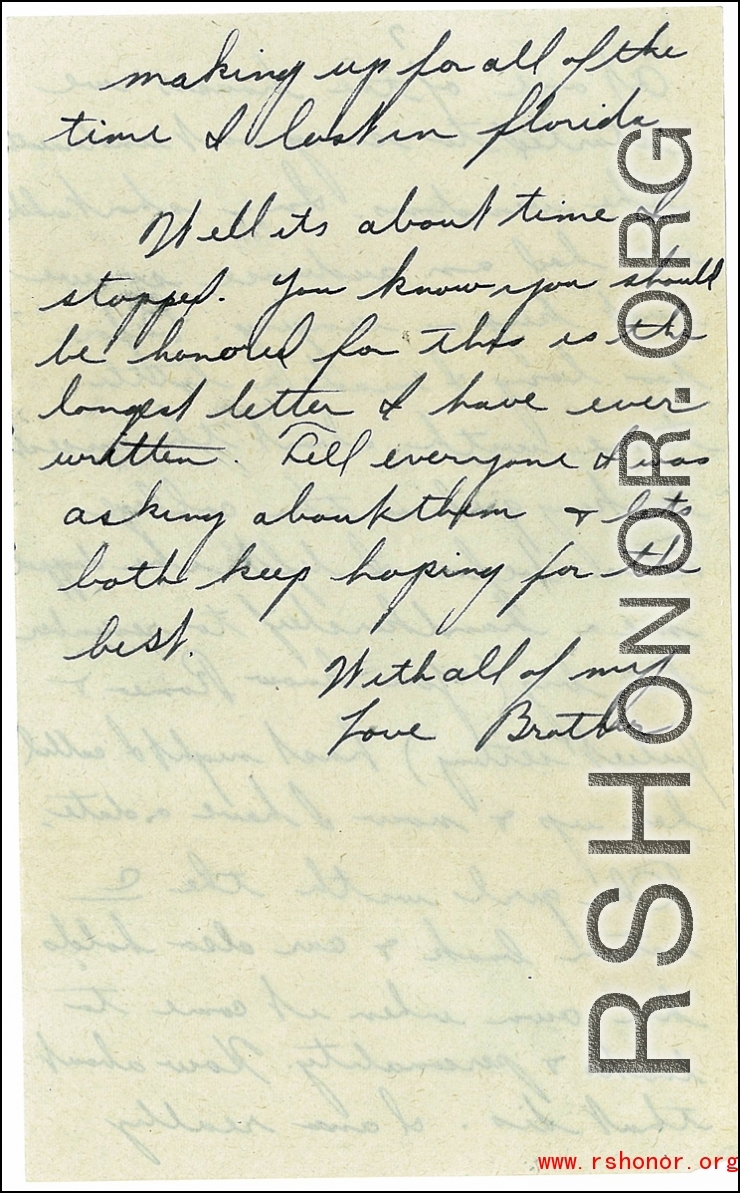 making up for all of the
time I lost in florida
Well its about time I
stopped. You know you should
be honored for this is the
longest letter I have ever
written. Tell everyone I was
asking about them & lets
both keep hoping for the
best.
With all of my
Love Brother
RSHONOR.ORG
www.rshonor.org